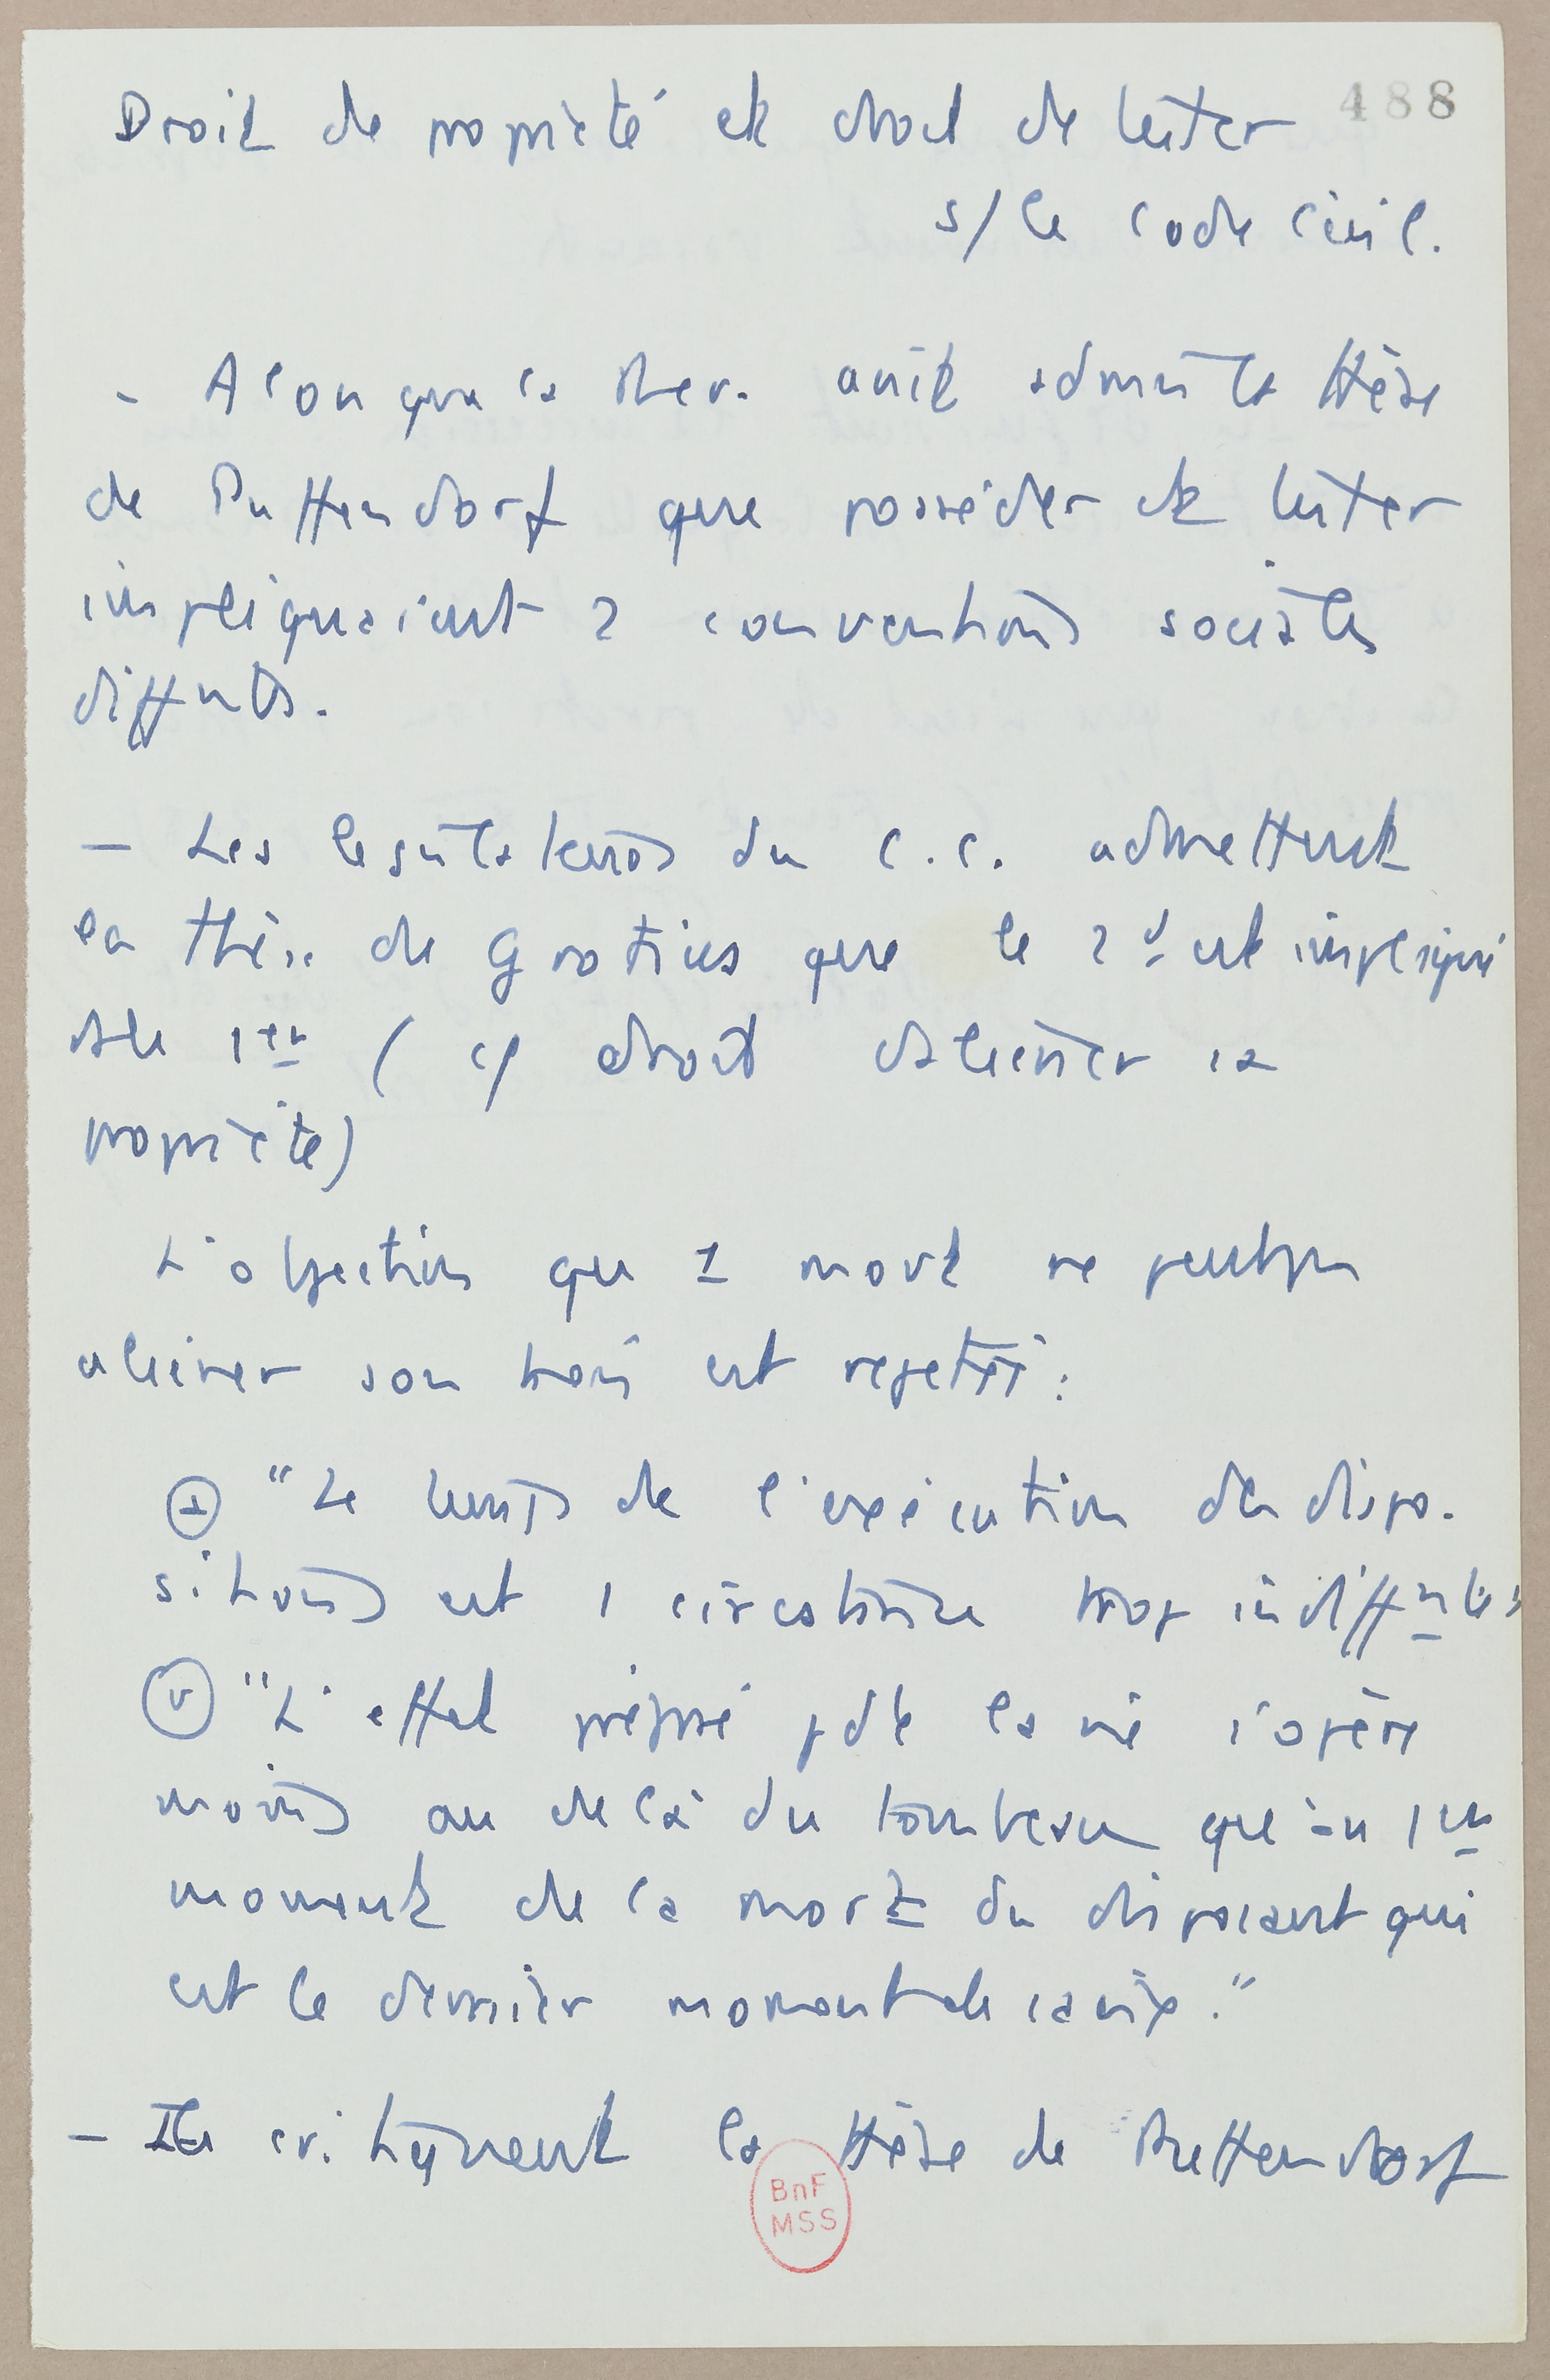 488
Droit de propriété et droit de tester
s/ le code civil.
- Alors que la Rev. avait admis la thèse
de Puffendorf que posséder et tester
impliquaient 2 conventions sociales
difftes.
- Les législateurs du C.C. admettent
la thèse de Grotius que le 2d est impliqué
ds le 1er ( cf droit d'aliéner la
propriété)
L'objection qu'1 mort ne peut pas
aliéner son bien est rejetée :
"Le temps de l'exécution des dispo-
sitions est 1 circonstance trop indiffte"
"L'effet préparé pdt la vie s'opère
moins au delà du tombeau qu'au 1er
moment de la mort du disposant qui
est le dernier moment de la vie."
- Ils critiquent la thèse de Puffendorf
BnF
MSS